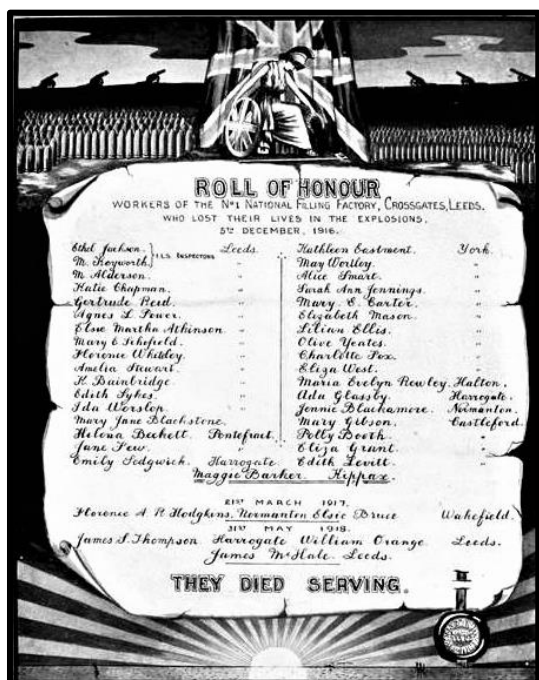 ROLL OF HONOUR
WORKERS OF THE Nº1 NATIONAL FILLING FACTORY, CROSSGATES, LEEDS.
WHO LOST THEIR LIVES IN THE EXPLOSIONS,
5TH DECEMBER, 1916.
Ethel Jackson. } I.L.S. INSPECTORS Leeds.
M. Keyworth. "
M Alderson. "
Katie Chapman. "
Gertrude Reid. "
Agnes L. Power. "
Elsie Martha Atkinson. "
Mary E Schofield. "
Florence Whiteley. "
Amelia Stewart. "
K. Bainbridge. "
Edith Sykes. "
Ida Worslop. "
Mary Jane Blackstone. "
Helena Beckett. Pontefract.
Jane Few. "
Emily Sedgwick. Harrogate
Kathleen Eastment. York.
May Wortley. "
Alice Smart. "
Sarah Ann Jennings. "
Mary. E. Carter. "
Elizabeth Mason. "
Lilian Ellis. "
Olive Yeates. "
Charlotte Fox. "
Eliza West. "
Maria Evelyn Rowley. Halton.
Ada Glassby. Harrogate.
Jennie Blackamore. Normanton.
Mary Gibson. Castleford.
Polly Booth. "
Eliza Grant. "
Edith Levitt. "
Maggie Barker. Kippax.
21ST MARCH 1917.
Florence A. R Hodgkins. Normanton Elsie Bruce Wakefield.
31ST MAY 1918.
James S. Thompson. Harrogate William Orange. Leeds.
James McHale. Leeds.
THEY DIED SERVING.